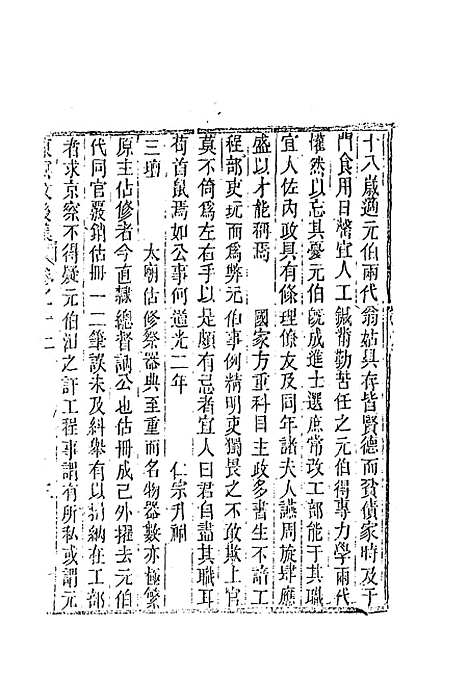 十八歲適元伯兩代翁姑具存皆賢德而貧債家時及于
門食用日緊宜人工鍼黹勤苦任之元伯得專力學兩代
懽然以忘其憂元伯旣成進士選庶常改工部能于其職
宜人佐內政具有條理僚友及同年諸夫人讌周旋肆應
盛以才能稱焉 國家方重科目主政多書生不諳工
程部吏玩而爲弊元伯事例精明吏獨畏之不敢欺上官
莫不倚爲左右手以是頗有忌者宜人曰君自盡其職耳
苟首鼠焉如公事何道光二年 仁宗升祔
三瑜 太廟估修祭器典至重而名物器數亦極繁
原主估修者今直隸總督訥公也估冊成已外擢去元伯
代同官覈銷估冊一二筆誤未及糾舉有以捐納在工部
者求京察不得疑元伯沮之訐工程事謂有所私或謂元
後集